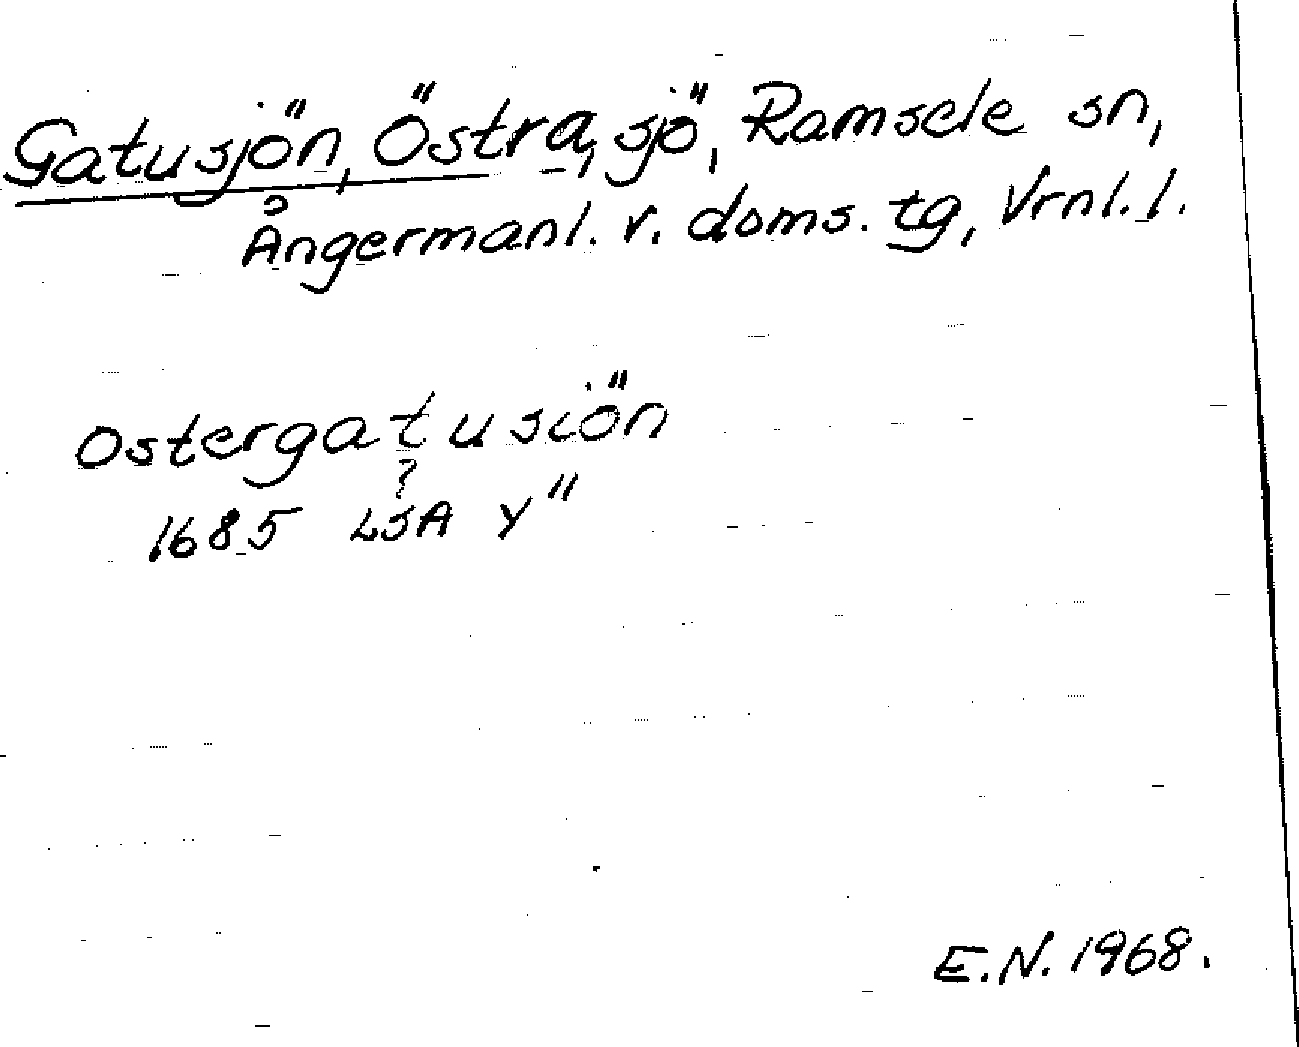 Gatusjön, Östra, sjö, Ramsele sn,
Ångermanl. v. doms. tg, Vrnl. l.
Ostergatusiön
?
1685 LSA Y"
E.N. 1968.